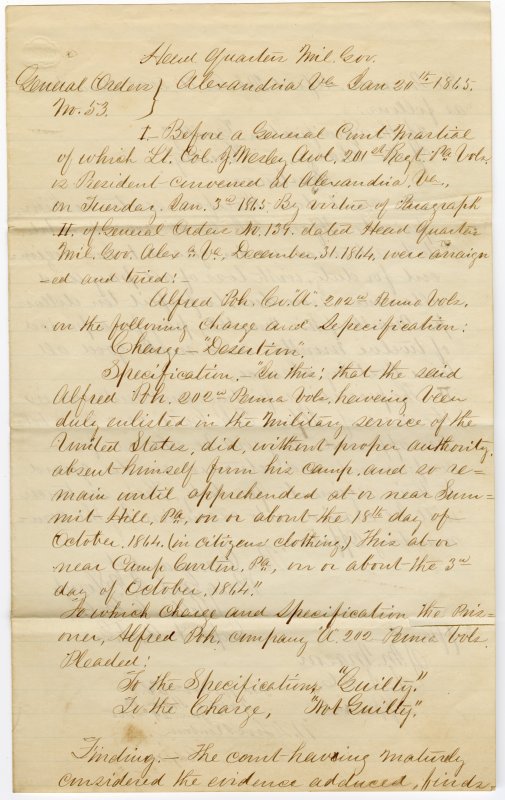 Head Quarters Mil. Gov.
General Orders } Alexandria Va Jan 20th 1865.
No. 53.
I. Before a General Court Martial
of which Lt. Col. J. Wesley Awl, 201st Regt. Pa Vols.
is President convened at Alexandria, Va.,
on Tuesday Jan. 3rd 1865 By virtue of Paragraph
II. of General Orders No. 139. dated Head Quarters
Mil. Gov. Alexa Va, December, 31. 1864, were arraign
ed and tried:
Alfred Poh, Co. "A". 202nd Penna Vols,
on the following Charge and Specification:
Charge—"Desertion".
Specification.—"In this; that the said
Alfred Poh, 202nd Penna Vols, having been
duly enlisted in the Military service of the
United States, did, without proper authority,
absent himself from his camp, and so re=
main until apprehended at or near Sum=
mit Hill, Pa, on or about the 18th day of
October, 1864, (in citizens clothing.) This at or
near Camp Curtin, Pa, on or about the 3rd
day of October, 1864."
To which Charge and Specification the Pris=
oner, Alfred Poh, Company A 202 Penna Vols.
Pleaded:
To the Specification, "Guilty."
To the Charge, "Not Guilty".
Finding.—The court having maturely
considered the evidence adduced, finds,